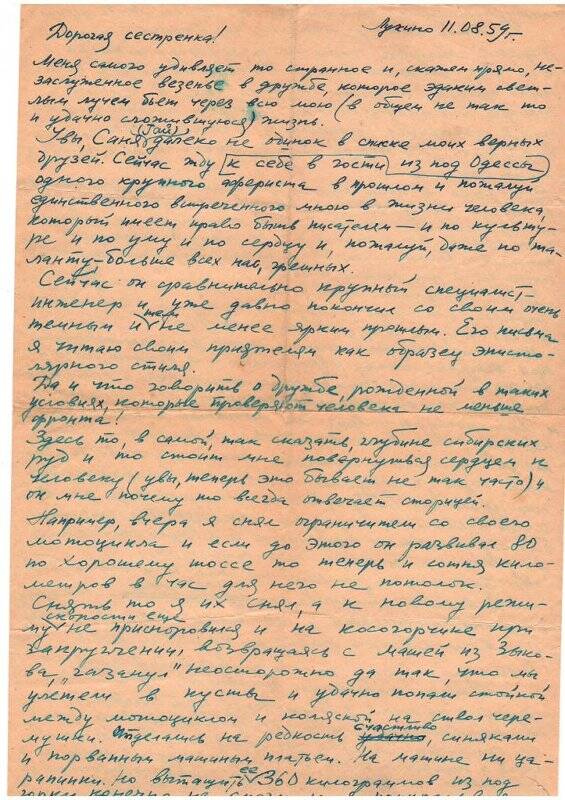 Лукино 11.08.59г.
Дорогая сестренка!
Меня самого удивляет то странное и, скажем прямо, не-
заслуженное везенье в дружбе, которое эдаким свет-
лым лучем бьет через всю мою (в общем не так то
и удачно сложившуюся) жизнь.
Увы, Саня (Гай) далеко не одинок в списке моих верных
друзей. Сейчас жду к себе в гости из под Одессы
одного крупного афериста в прошлом и пожалуй
единственного встреченного мною в жизни человека,
который имеет право быть писателем – и по культу-
ре и по уму и по сердцу и, пожалуй, даже по та-
ланту – больше всех нас, грешных.
Сейчас он сравнительно крупный специалист-
инженер и уже давно покончил со своим очень
темным и тем не менее ярким прошлым. Его письма
я читаю своим приятелям как образец эписто-
лярного стиля.
Да и что говорить о дружбе, рожденной в таких
условиях, которые проверяют человека не меньше
фронта!
Здесь то, в самой, так сказать, глубине сибирских
руд и то стоит мне повернуться сердцем к
человеку (увы, теперь это бывает не так часто) и
он мне почему то всегда отвечает сторицей.
Например, вчера я снял ограничители со своего
мотоцикла и если до этого он развивал 80
по хорошему шоссе то теперь и сотня кило-
метров в час для него не потолок.
Снять то я их снял, а к новому режи-
му скорости еще не приспособился и на косогорчике при
закруглении, возвращаясь с машей из Зыко-
ва, "газанул" неосторожно да так, что мы
улетели в кусты и удачно попали стойкой
между мотоциклом и коляской на ствол чере-
мушки. Отделались на редкость счастливо, синяками
и порванным машиным платьем. На машине ни ца-
рапинки. Но вытащить ее 360 килограммов из под
горки конечно не